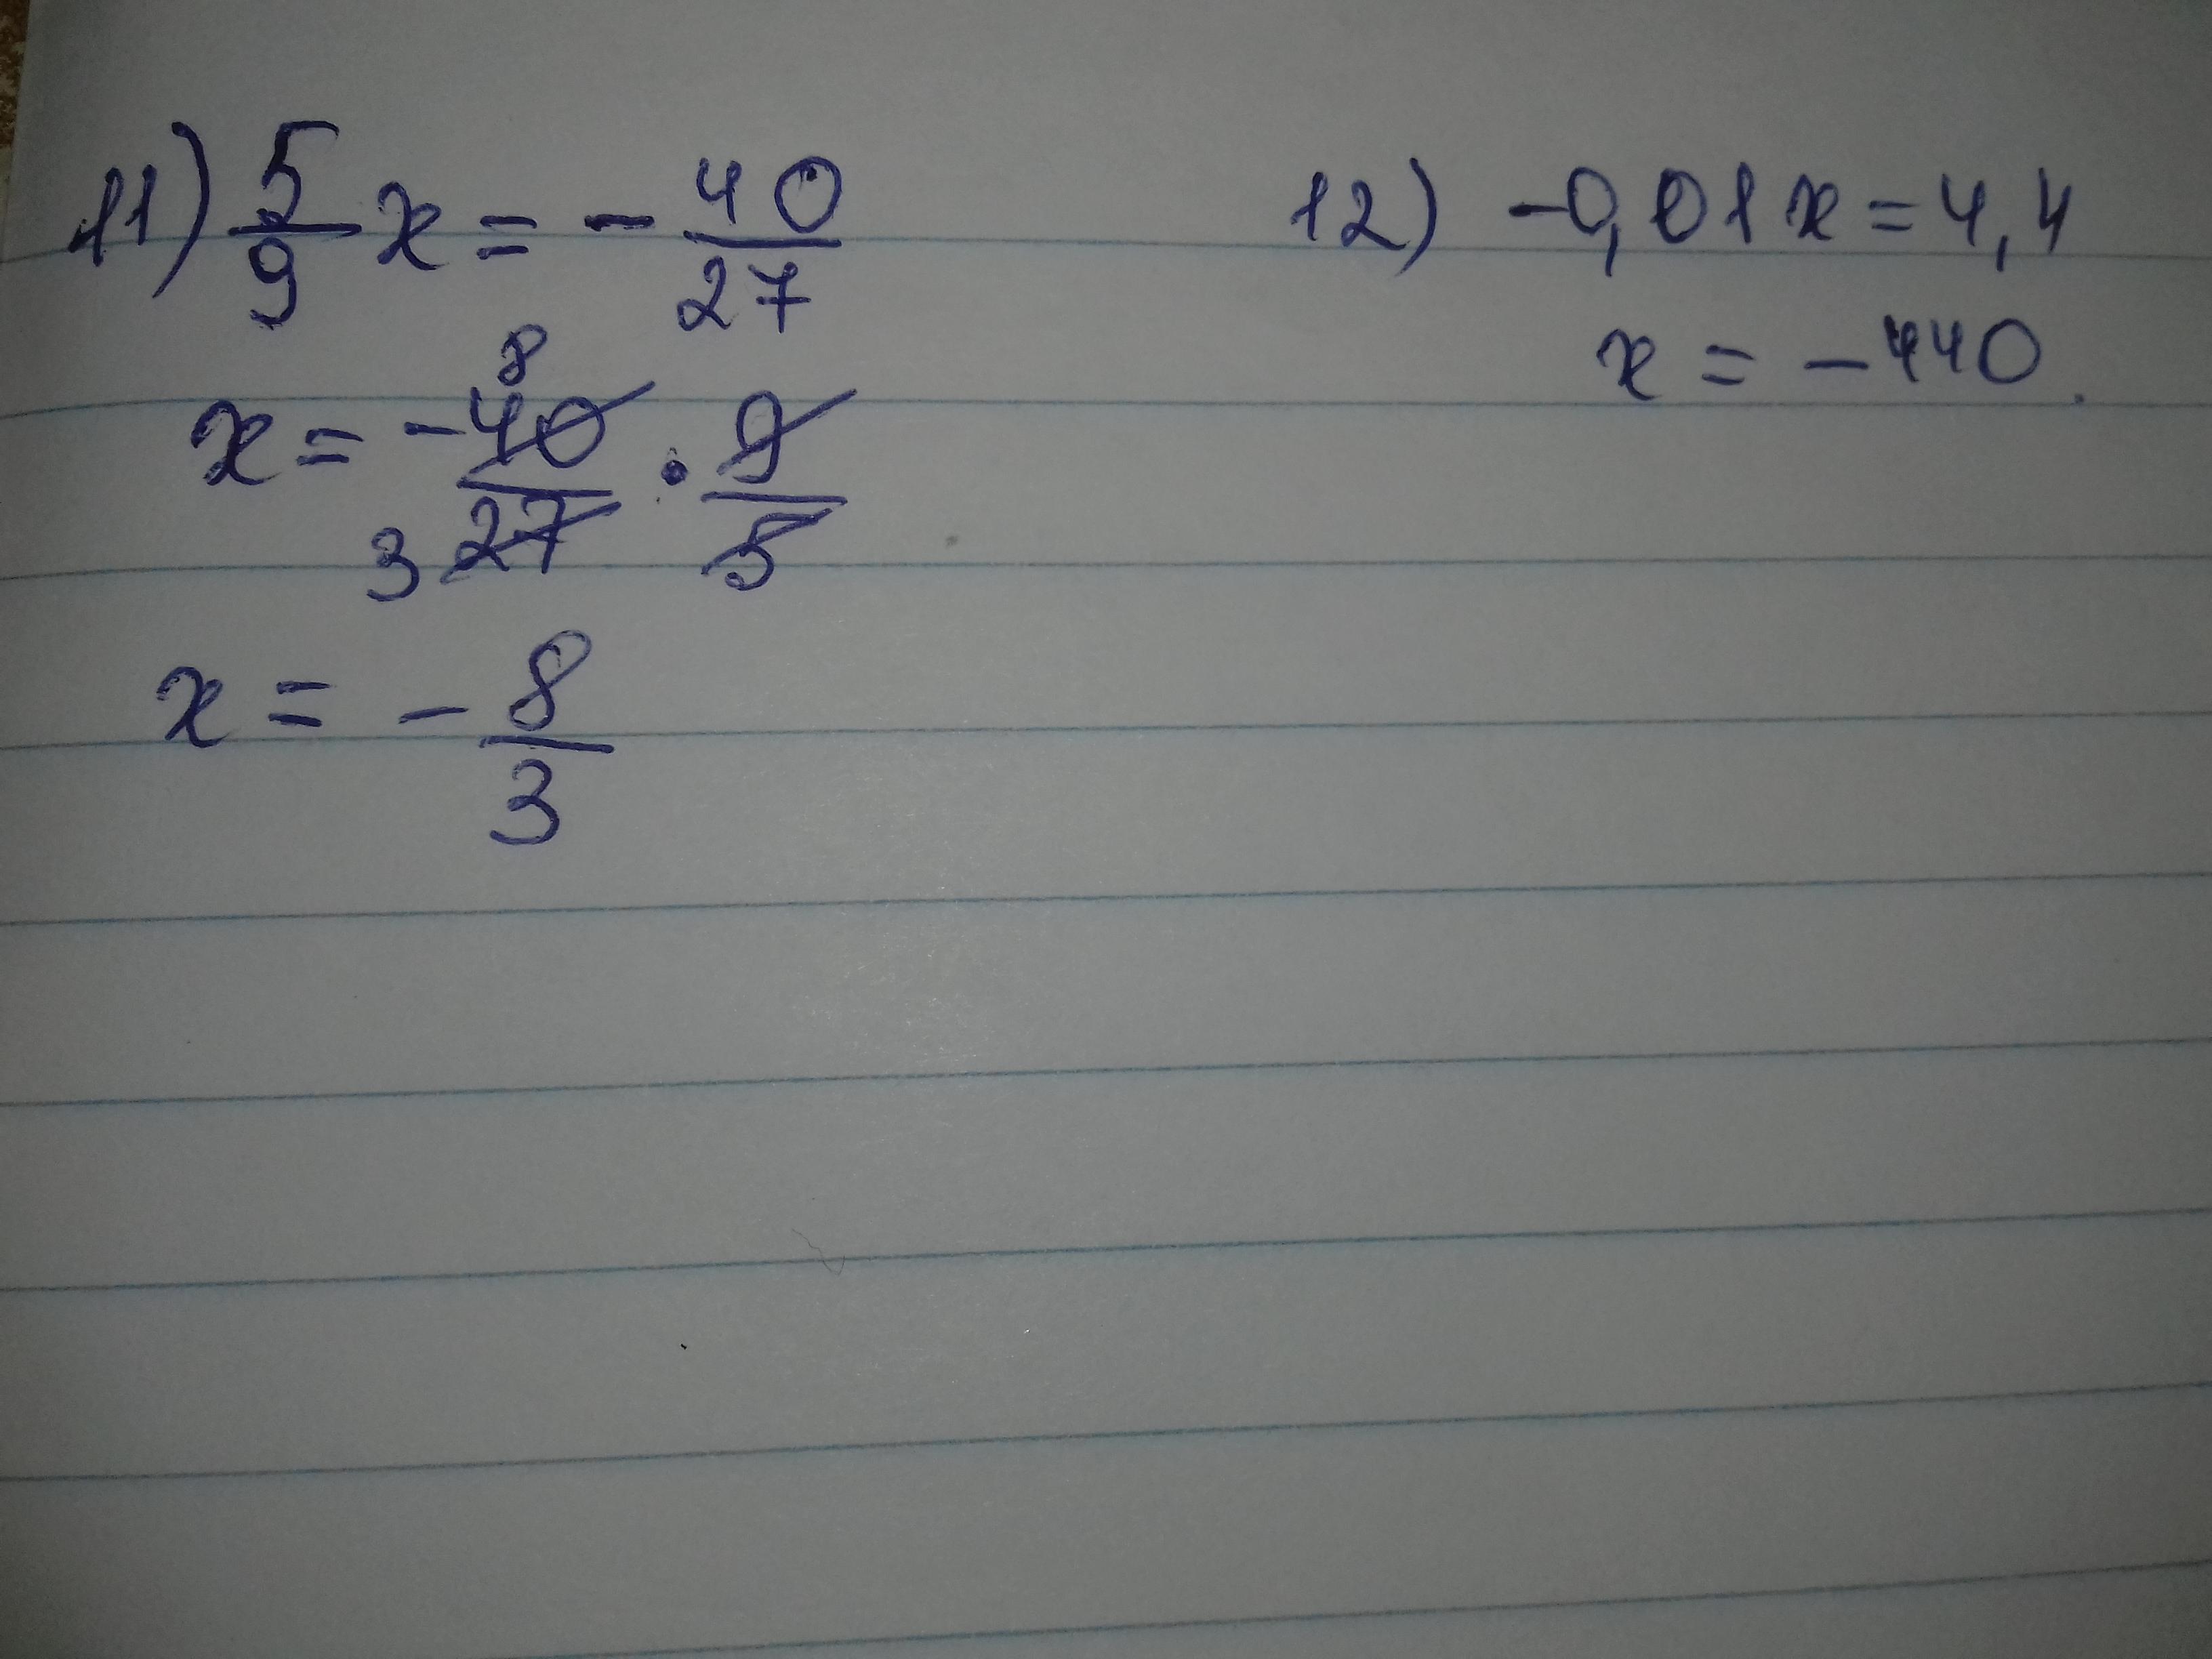 11) 5/9 x = - 40/27
x = - 40/27 · 9/5
8
3
x = - 8/3
12) -0,01x = 4,4
x = -440.